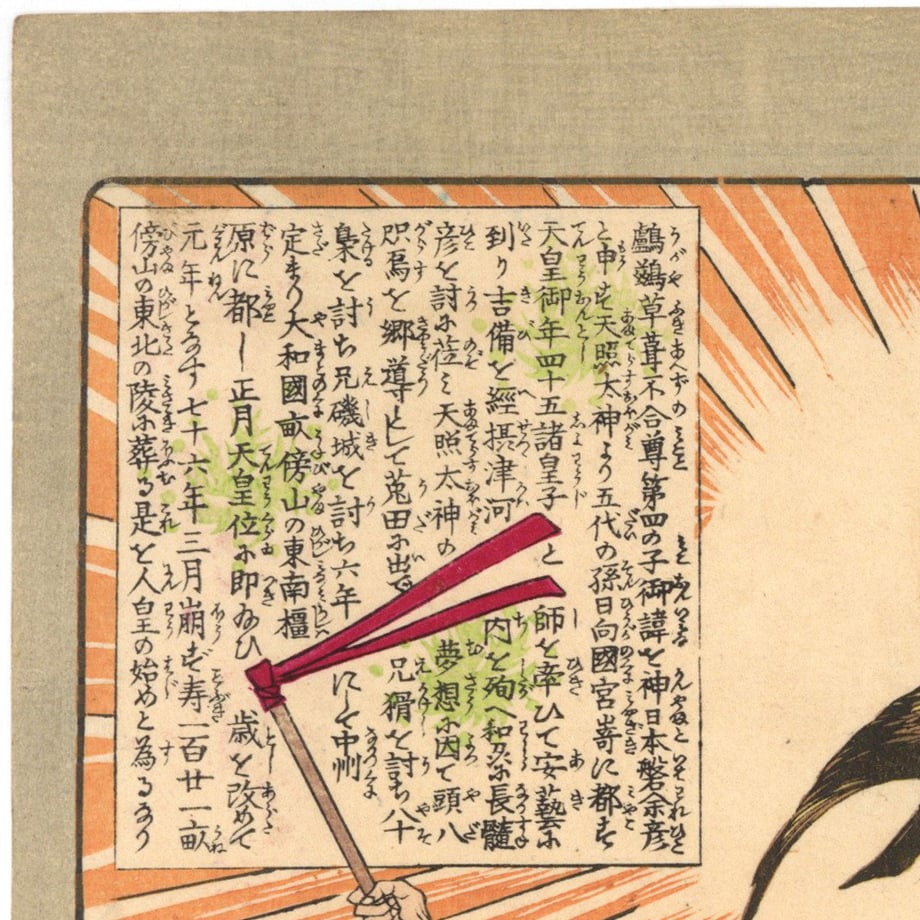 鸕鷀草葺不合尊第四の子御諱を神日本磐余彦
と申す天照太神より五代の孫日向國宮嵜に都す
天皇御年四十五諸皇子と師を牽ひて安藝に
到り吉備を經摂津河内を殉へ和泉に長髓
彦を討に莅ミ天照太神の夢想に因て頭八
咫烏を郷導として菟田に出て兄猾を討ち八十
梟を討ち兄磯城を討ち六年にして中州
定まり大和國畝傍山の東南橿
原に都し正月天皇位に即ゐひ歳を改めて
元年となす七十六年三月崩ず寿一百廿一畝
傍山の東北の陵に葬る是を人皇の始めと為るなり